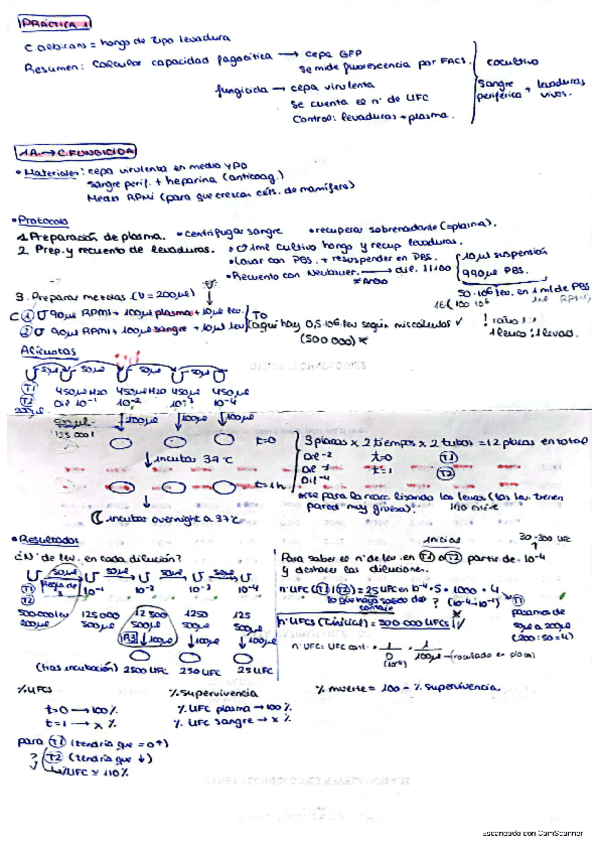 PRÁCTICA 1
C. albicans = hongo de tipo levadura
Resumen: Calcular capacidad fagocítica → cepa GFP
se mide fluorescencia por FACS.
cocultivo
fungicida → cepa virulenta
se cuenta el nº de UFC
Control: levaduras + plasma.
Sangre periférica + levaduras vivas.
1A → C. FUNGICIDA
• Materiales: cepa virulenta en medio YPD
Sangre perif. + heparina (anticoag.)
Medio RPMI (para que crezcan céls. de mamífero)
• Protocolo
1. Preparación de plasma. • centrifugar sangre • recuperar sobrenadante (plasma).
2. Prep. y recuento de levaduras. • 1ml cultivo hongo y recup levaduras.
• Lavar con PBS. + resuspender en PBS.
• Recuento con Neubauer. → dil. 1/100
10µl suspensión
990µl PBS.
50·10⁶ lev. en 1ml de PBS
3. Preparar mezclas (V = 200µl)
C ① 90µl RPMI + 100µl plasma + 10µl lev.
② 90µl RPMI + 100µl sangre + 10µl lev
T0
(aquí hay 0,5·10⁶ lev según mis cálculos ✓
(500 000) *
! ratio 1:1
1 leuco : 1 levad.
Alícuotas
50µl 50µl 50µl 50µl
T1
T2
200µl
450µl H2O 450µl H2O 450µl 450µl
Dil 10⁻¹ 10⁻² 10⁻³ 10⁻⁴
50µl
125 000
↓100µl ↓100µl ↓100µl
t=0
↓ incubar 37ºC
t=1h
incubar overnight a 37ºC
3 placas x 2 tiempos x 2 tubos = 12 placas en total
Dil⁻² t=0 T1
Dil⁻³ t=1 T2
Dil⁻⁴
pared muy gruesa).
• Resultados
¿Nº de lev. en cada dilución?
50µl 50µl 50µl 50µl
T1
T2
10⁻¹ 10⁻² 10⁻³ 10⁻⁴
500 000 lev 125 000 12500 1250 125
200µl 500µl 500µl 500µl 500µl
↓100µl ↓100µl ↓100µl
(tras incubación) 2500 UFC 250 UFC 25 UFC
iniciales
30-300 UFC
Para saber el nº de lev. en T1 o T2 partir de 10⁻⁴
y deshacer las diluciones.
nº UFC (T1 | T2) = 25 UFC en 10⁻⁴ · 5 · 1000 · 4
(10⁻⁴→10⁻¹)
T1
pasamos de
50µl a 200µl
(200:50=4)
nº UFCs (T inicial) = 500 000 UFCs ✓
nº UFC: UFC cont · 1/D · 1/100µl → (inoculado en placa)
(10⁻⁴)
% UFCs
t=0 → 100%
t=1 → x %
% supervivencia
% UFC plasma → 100%
% UFC sangre → x %
% muerte = 100 - % supervivencia.
para T1 (tendría que =o↑)
? T2 (tendría que ↓)
% UFC > 110%
Escaneado con CamScanner